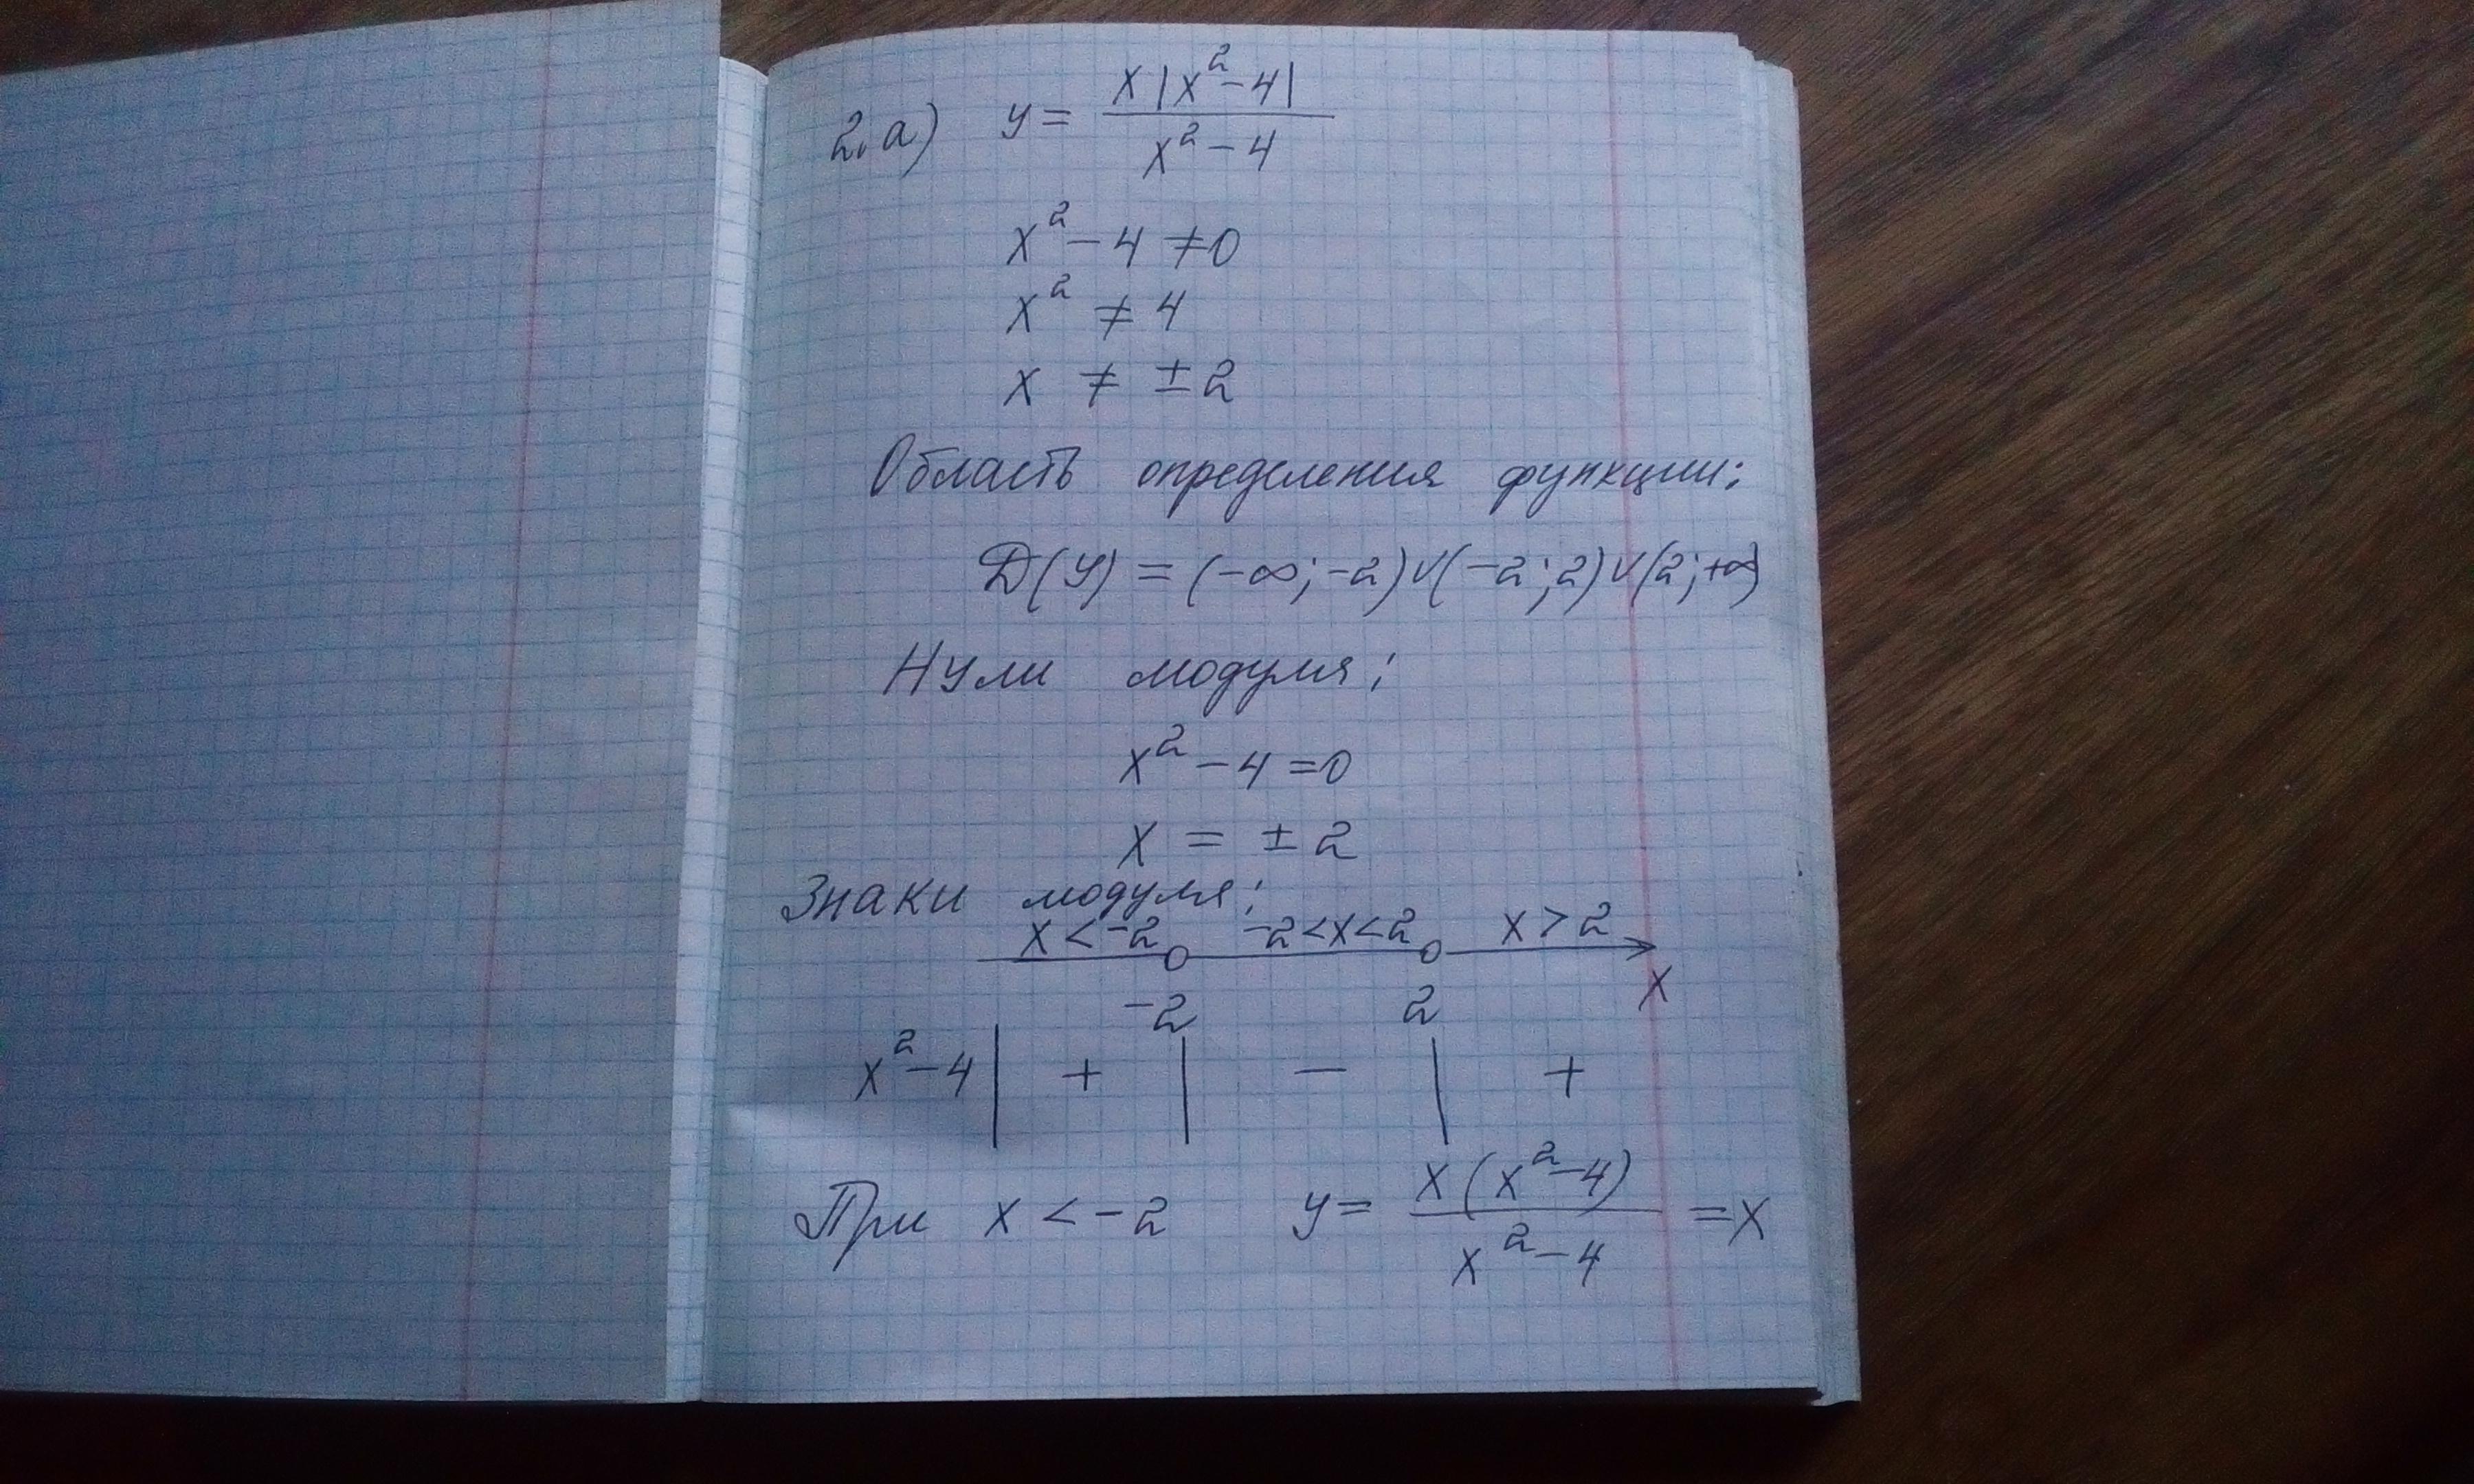 2. а) y = x |x² - 4| / x² - 4
x² - 4 ≠ 0
x² ≠ 4
x ≠ ± 2
Область определения функции:
D(y) = (-∞; -2) ∪ (-2; 2) ∪ (2; +∞)
Нули модуля:
x² - 4 = 0
x = ± 2
Знаки модуля:
x < -2 -2 < x < 2 x > 2
-2 2 x
x² - 4 | + | - | +
При x < -2 y = x (x² - 4) / x² - 4 = x